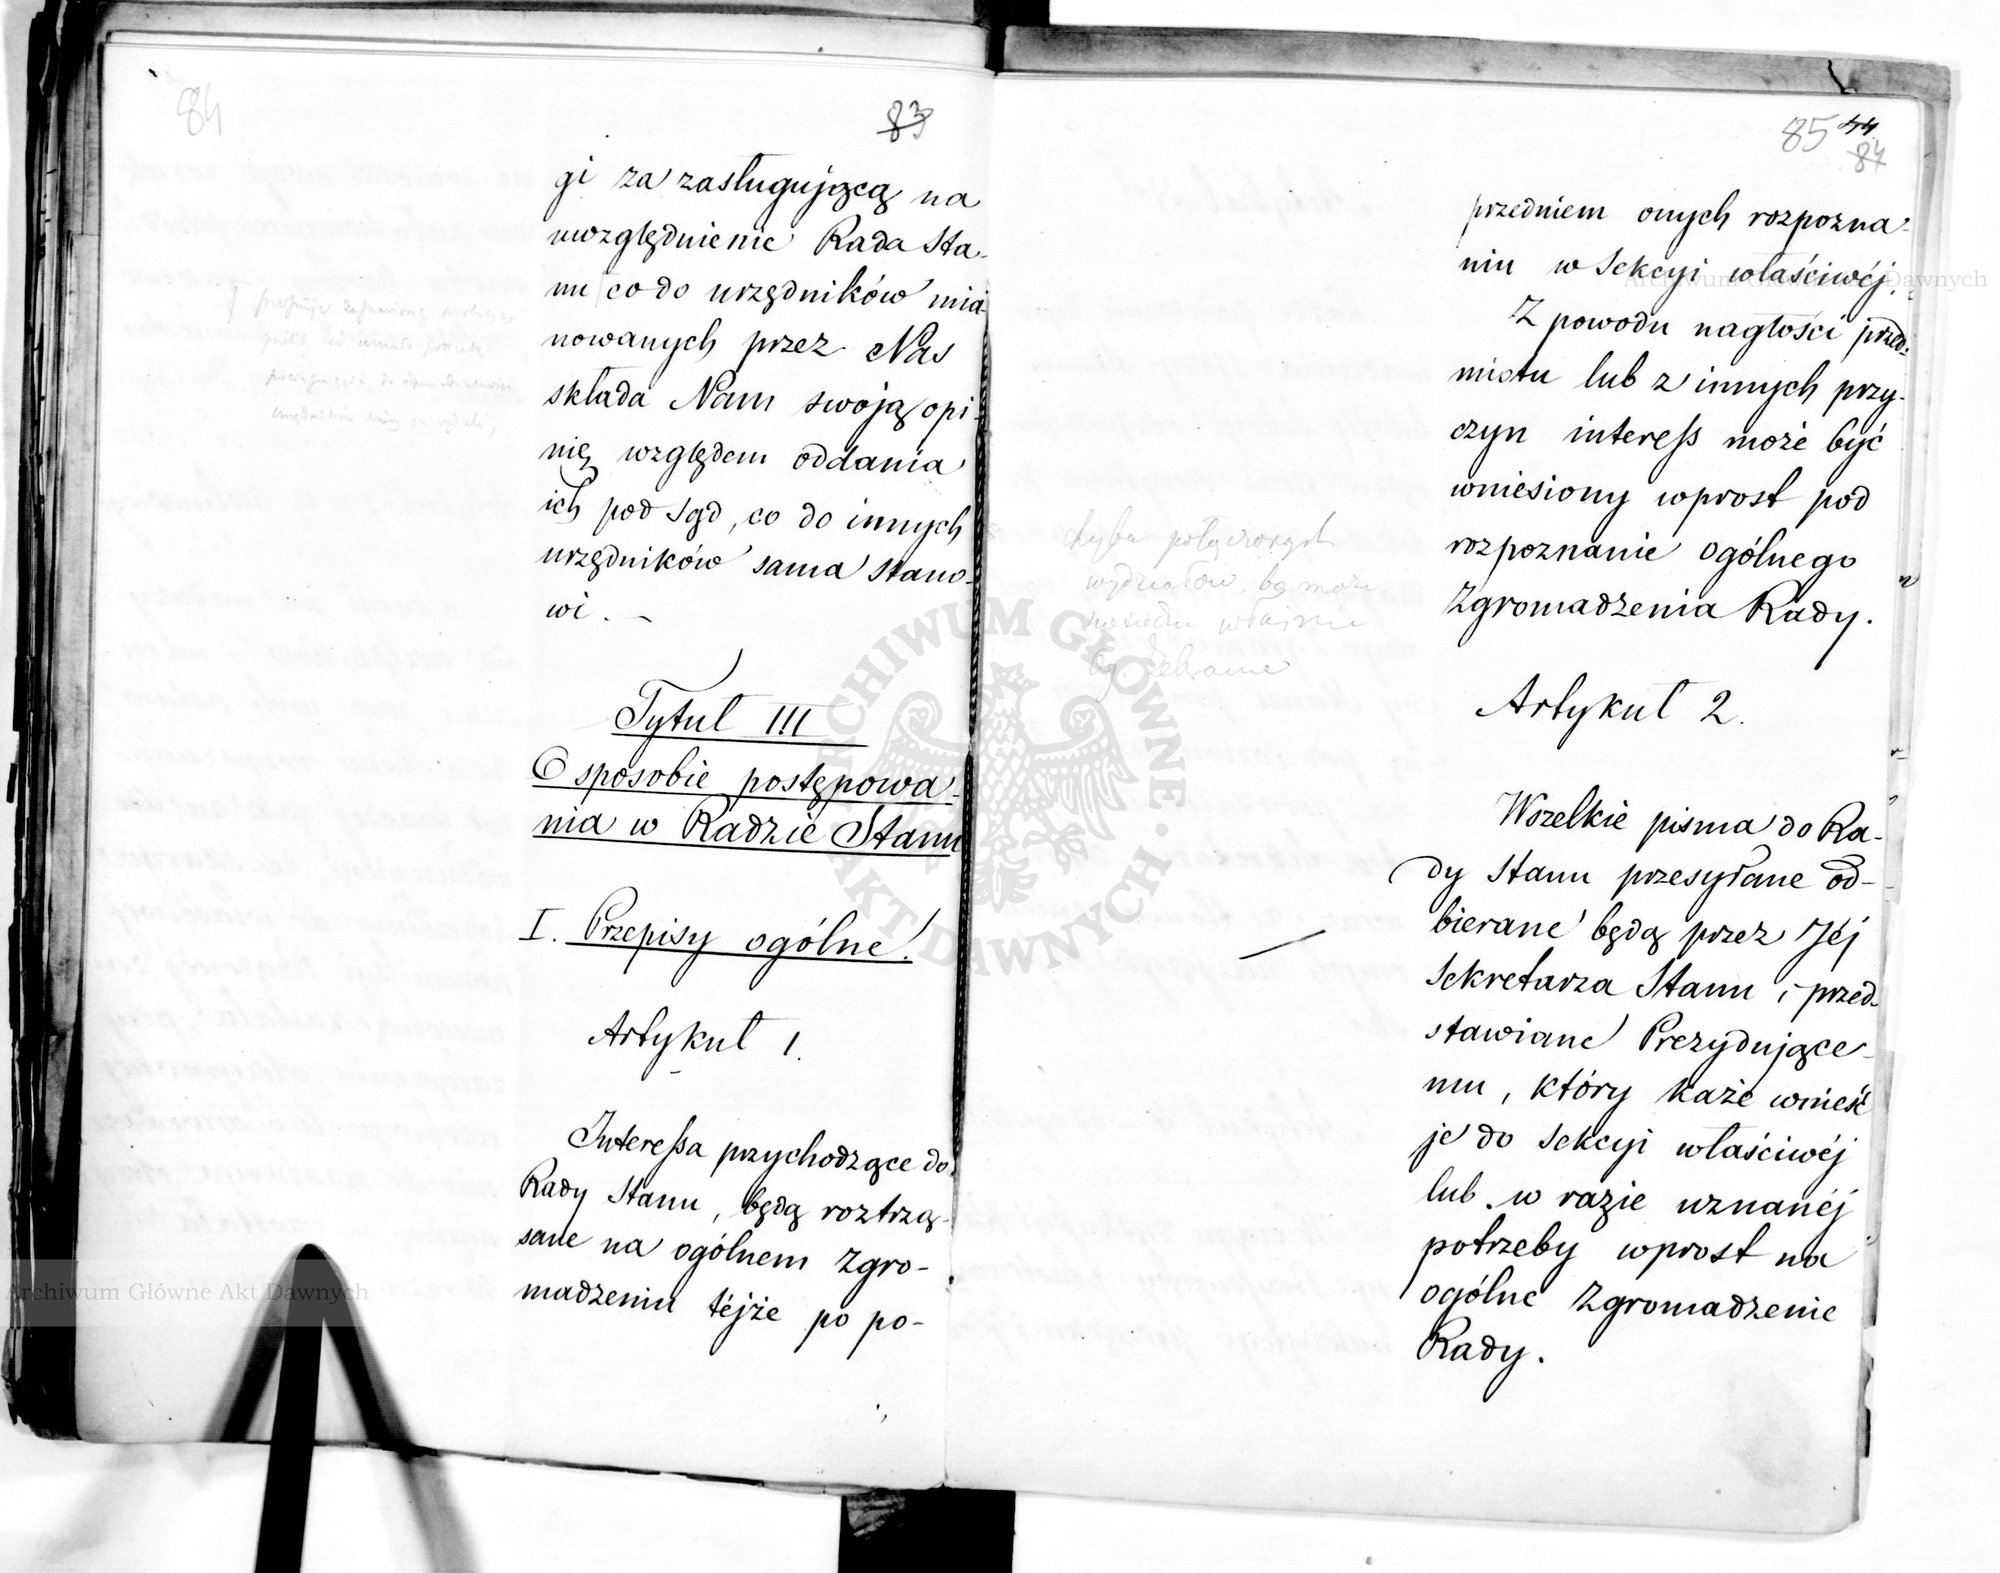 84
83
gi za zasługującą na
uwzględnienie Rada Sta-
nu co do urzędników mia-
nowanych przez Nas
składa Nam swoją opi-
nię względem oddania
ich pod sąd, co do innych
urzędników sama stano-
wi.
Tytuł III
O sposobie postępowa-
nia w Radzie Stanu
I. Przepisy ogólne.
Artykuł 1.
Interessa przychodzące do
Rady Stanu, będą roztrzą-
sane na ogólnem Zgro-
madzeniu téjże po po-
85
44
84
przedniem onych rozpozna-
niu w Sekcyi właściwéj.
Z powodu nagłości przed-
miotu lub z innych przy-
czyn interess może być
wniesiony wprost pod
rozpoznanie ogólnego
Zgromadzenia Rady.
chyba połączonych
wydziałów, bo może
właśnie
Zebranie
Artykuł 2.
Wszelkie pisma do Ra-
dy Stanu przesyłane od-
bierane będą przez Jéj
Sekretarza Stanu i przed-
stawiane Prezydujące-
mu, który każe wnieść
je do Sekcyi właściwéj
lub w razie uznanéj
potrzeby wprost na
ogólne Zgromadzenie
Rady.
ARCHIWUM GŁÓWNE AKT DAWNYCH
Archiwum Główne Akt Dawnych
Archiwum Główne Akt Dawnych